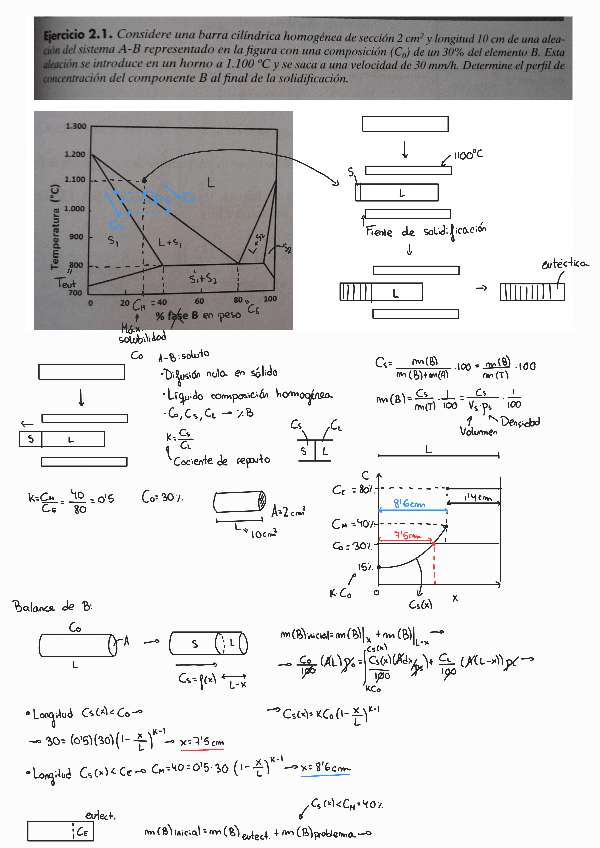 Ejercicio 2.1. Considere una barra cilíndrica homogénea de sección 2 cm² y longitud 10 cm de una alea-
ción del sistema A-B representado en la figura con una composición (C₀) de un 30% del elemento B. Esta
aleación se introduce en un horno a 1.100 ºC y se saca a una velocidad de 30 mm/h. Determine el perfil de
concentración del componente B al final de la solidificación.
1.300
1.200
1.100
1.000
900
800
700
Temperatura (°C)
L
S₁
L+S₁
S₁+S₂
Teut
0 20 40 60 80 100
C_M =
C_E
% fase B en peso
Máx.
solubilidad
1100ºC
S L
Frente de solidificación
eutéctica
L
C₀ A-B: soluto
· Difusión nula en sólido
· Líquido composición homogénea
· C₀, Cs, C_L → % B
K = Cs/C_L
Cociente de reparto
S L
Cs C_L
S L
Cs = m(B)/(m(B)+m(A)) · 100 = m(B)/m(T) · 100
m(B) = Cs/m(T) · 1/100 = Cs/(Vs·ρs) · 1/100
Volumen Densidad
K = C_M/C_E = 40/80 = 0'5 C₀ = 30%.
A = 2cm²
L = 10cm³
L
C
C_E = 80%
8'6cm 1'4cm
C_M = 40%
7'5cm
C₀ = 30%
15%
K·C₀
0 Cs(x) x
Balance de B:
C₀
A
L
S L
Cs = f(x) L-x
m(B)inicial = m(B)|x + m(B)|L-x →
→ C₀/100 (AL)ρ₀ = ∫ Cs(x)/100 (A dx)ρs + C_L/100 (A(L-x))ρL →
Cs(x)
KC₀
→ Cs(x) = KC₀(1 - x/L)^K-1
• Longitud Cs(x) < C₀ →
→ 30 = (0'5)(30)(1 - x/L)^K-1 → x = 7'5cm
• Longitud Cs(x) < C_E → C_M = 40 = 0'5·30 (1 - x/L)^K-1 → x = 8'6cm
Cs(x) < C_M = 40%
eutect.
C_E
m(B)inicial = m(B)eutect. + m(B)problema →